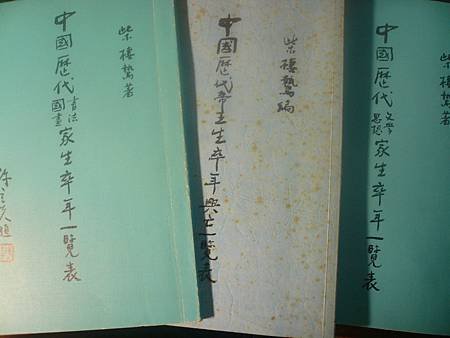 中國歷代書法國畫家生卒年一覽表
柴棲鷙著
中國歷代帝王生卒年興亡一覽表
柴棲鷙編
中國歷代文學思想家生卒年一覽表
柴棲鷙著